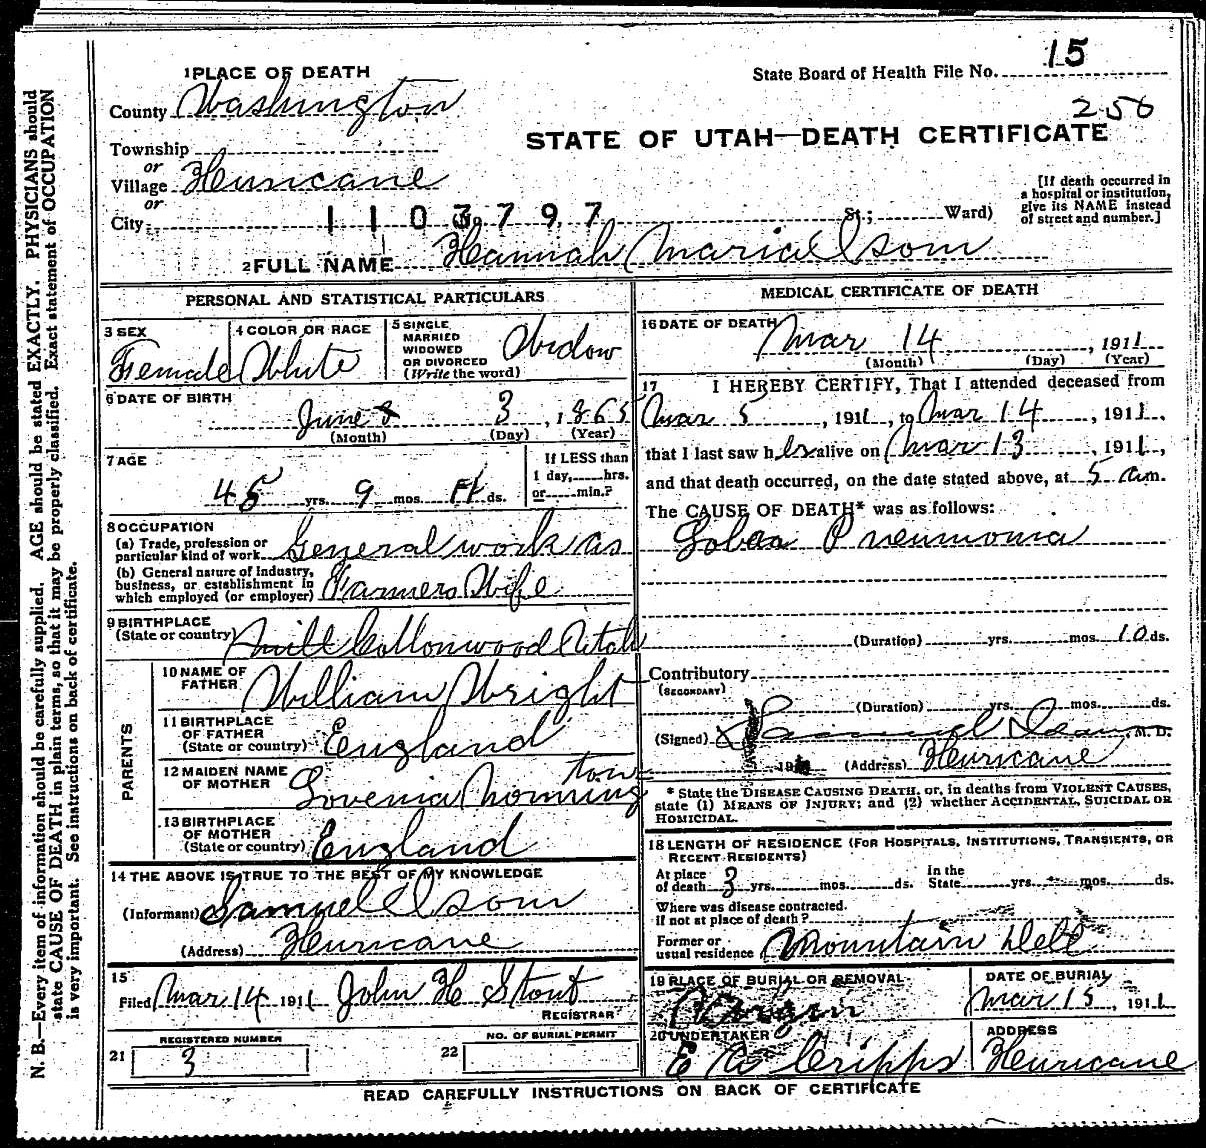 1 PLACE OF DEATH
State Board of Health File No. 15
County Washington
250
STATE OF UTAH—DEATH CERTIFICATE
Township
or
Village Hurricane
or
City
[If death occurred in a hospital or institution, give its NAME instead of street and number.]
1103797
St.; Ward)
2 FULL NAME Hannah Maria Isom
PERSONAL AND STATISTICAL PARTICULARS
3 SEX Female
4 COLOR OR RACE White
5 SINGLE, MARRIED WIDOWED OR DIVORCED (Write the word) Widow
6 DATE OF BIRTH
June 3, 1865
(Month) (Day) (Year)
7 AGE
45 yrs. 9 mos. 11 ds.
If LESS than 1 day, hrs. or min.?
8 OCCUPATION
(a) Trade, profession or particular kind of work General work as
(b) General nature of industry, business, or establishment in which employed (or employer) Farmers Wife
9 BIRTHPLACE
(State or country) Mill Cottonwood Utah
PARENTS
10 NAME OF FATHER William Wright
11 BIRTHPLACE OF FATHER (State or country) England
12 MAIDEN NAME OF MOTHER Lovenia
13 BIRTHPLACE OF MOTHER (State or country) England
14 THE ABOVE IS TRUE TO THE BEST OF MY KNOWLEDGE
(Informant) Samuel Isom
(Address) Hurricane
15
Filed Mar 14 1911 John H Stout
REGISTRAR
REGISTERED NUMBER
21 3
NO. OF BURIAL PERMIT
22
MEDICAL CERTIFICATE OF DEATH
16 DATE OF DEATH
Mar 14, 1911
(Month) (Day) (Year)
17 I HEREBY CERTIFY, That I attended deceased from
Mar 5, 1911, to Mar 14, 1911,
that I last saw her alive on Mar 13, 1911,
and that death occurred, on the date stated above, at 5 am.
The CAUSE OF DEATH* was as follows:
Lobar Pneumonia
(Duration) yrs. mos. 10 ds.
Contributory
(SECONDARY)
(Duration) yrs. mos. ds.
(Signed) Samuel M. D.
191 (Address) Hurricane
* State the DISEASE CAUSING DEATH, or, in deaths from VIOLENT CAUSES, state (1) MEANS OF INJURY; and (2) whether ACCIDENTAL, SUICIDAL OR HOMICIDAL.
18 LENGTH OF RESIDENCE (FOR HOSPITALS, INSTITUTIONS, TRANSIENTS, OR RECENT RESIDENTS)
At place of death 3 yrs. mos. ds. In the State yrs. mos. ds.
Where was disease contracted, if not at place of death?
Former or usual residence Mountain Dell
19 PLACE OF BURIAL OR REMOVAL
Virgin
DATE OF BURIAL
Mar 15, 1911
20 UNDERTAKER
E Cripps
ADDRESS
Hurricane
READ CAREFULLY INSTRUCTIONS ON BACK OF CERTIFICATE
N. B.—Every item of information should be carefully supplied. AGE should be stated EXACTLY. PHYSICIANS should
state CAUSE OF DEATH in plain terms, so that it may be properly classified. Exact statement of OCCUPATION
is very important. See instructions on back of certificate.